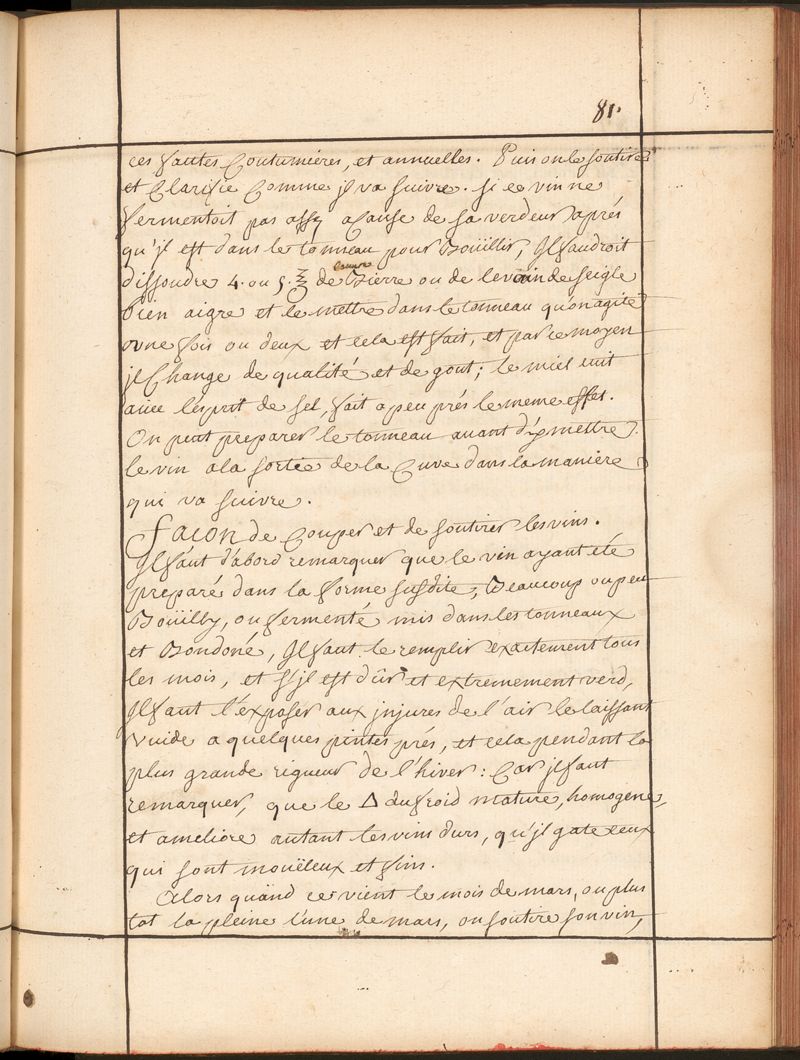 81.
ces fautes Coutumiéres, et annuelles. Puis on le soutire
et Clarifie Comme jl va suivre. si ce vin ne
fermentoit pas assez acause de sa verdeur aprés
qu'jl est dans le tonneau pour Boüillir, Jl faudroit
Levure
dissoudre 4. ou 5. ℥ de Bierre ou de levain de seigle
bien aigre et le mettre dans le tonneau qu'on agite
une fois ou deux et cela est fait, et par ce moyen
jl Change de qualité et de gout; le miel uni
avec l'esprit de sel, fait a peu prés le meme effet.
On peut preparer le tonneau avant d'y mettre
le vin a la sortie de la Cuve dans la maniere
qui va suivre.
façon de Couper et de soutirer les vins.
Jl faut d'abord remarquer que le vin ayant eté
preparé dans la forme susdite, Beaucoup ou peu
Boüilly, ou fermenté mis dans les tonneaux
et Bondoné, Jl faut le remplir exactement tous
les mois, et s'jl est dûr et extremement verd,
Jl faut l'exposer aux jnjures de l'air le laissant
vuide a quelques pintes prés, et cela pendant la
plus grande rigueur de l'hiver: Car jl faut
remarquer, que le △ du froid mature, homogene,
et ameliore autant les vins durs, qu'jl gate ceux
qui sont mouëleux et fins.
Alors quand ce vient le mois de mars, ou plus
tot la pleine lune de mars, on soutire son vin,